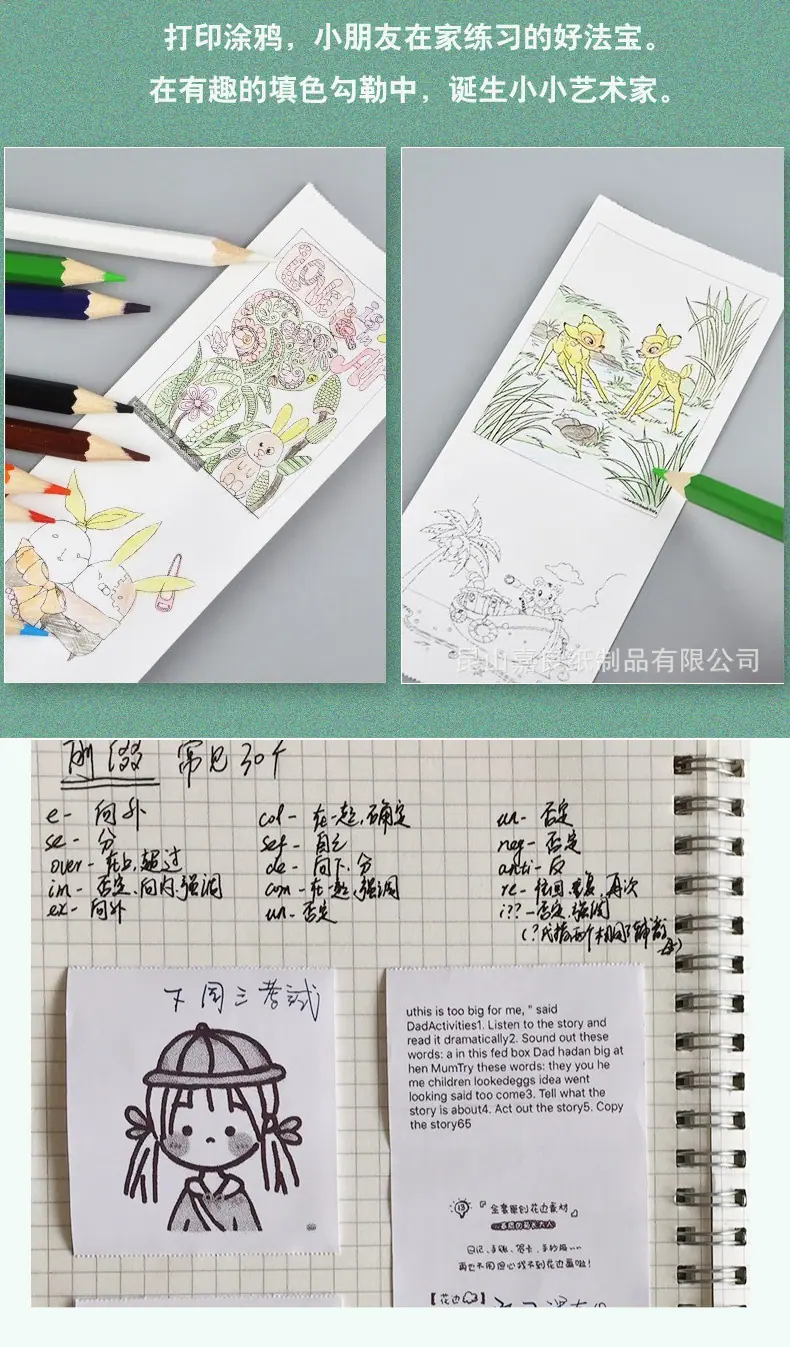 打印涂鸦，小朋友在家练习的好法宝。
在有趣的填色勾勒中，诞生小小艺术家。
昆山嘉良纸制品有限公司
前缀 常见30个
e- 向外
se- 分
over- 在上,超过
in- 否定,向内,强调
ex- 向外
col- 在一起,确定
sef- 自己
de- 向下,分
com- 在一起,强调
un- 否定
un- 否定
neg- 否定
anti- 反
re- 往回,重复,再次
i??- 否定,强调
(?代指两个相同
下周三考试
uthis is too big for me, " said
DadActivities1. Listen to the story and
read it dramatically2. Sound out these
words: a in this fed box Dad hadan big at
hen MumTry these words: they you he
me children lookedeggs idea went
looking said too come3. Tell what the
story is about4. Act out the story5. Copy
the story65
13 『全套原创花边素材』
日记、手账、贺卡、手抄报~~~
再也不用担心找不到花边画啦!
【花边】